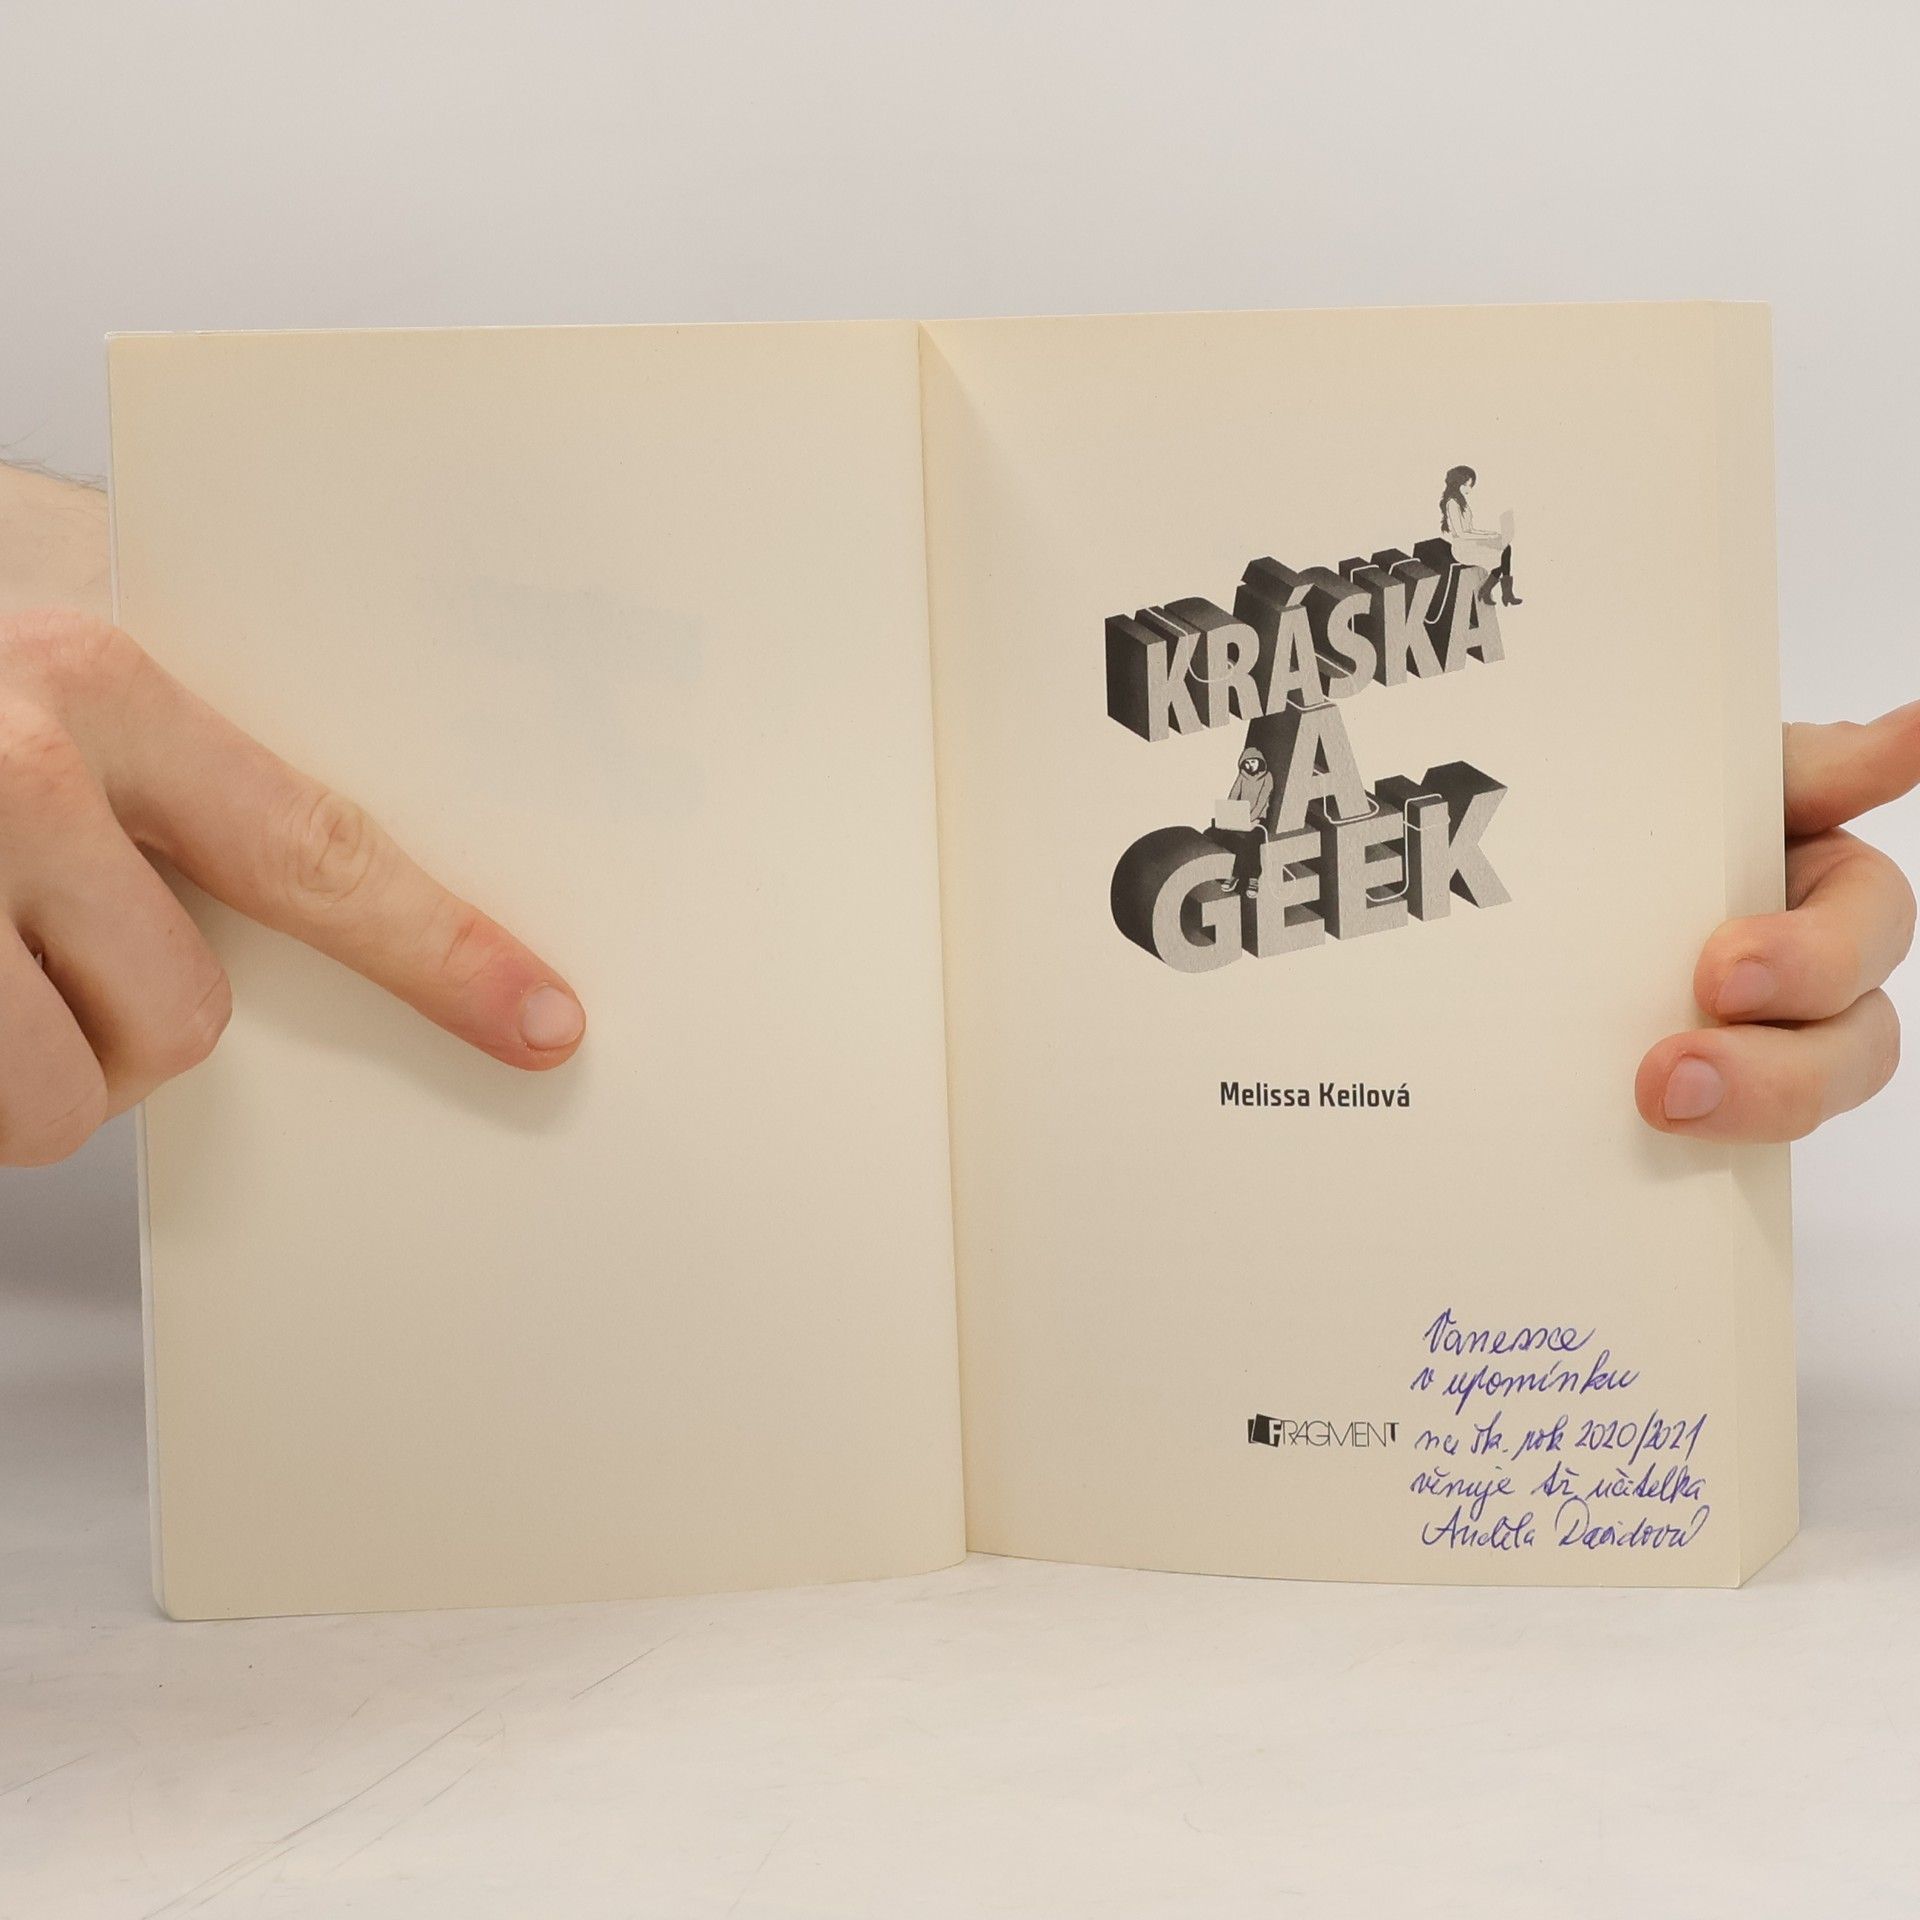 KRÁSKA
A
GEEK
Melissa Keilová
FRAGMENT
Vanessce
v upomínku
na šk. rok 2020/2021
věnuje tř. učitelka
Anděla Davidová